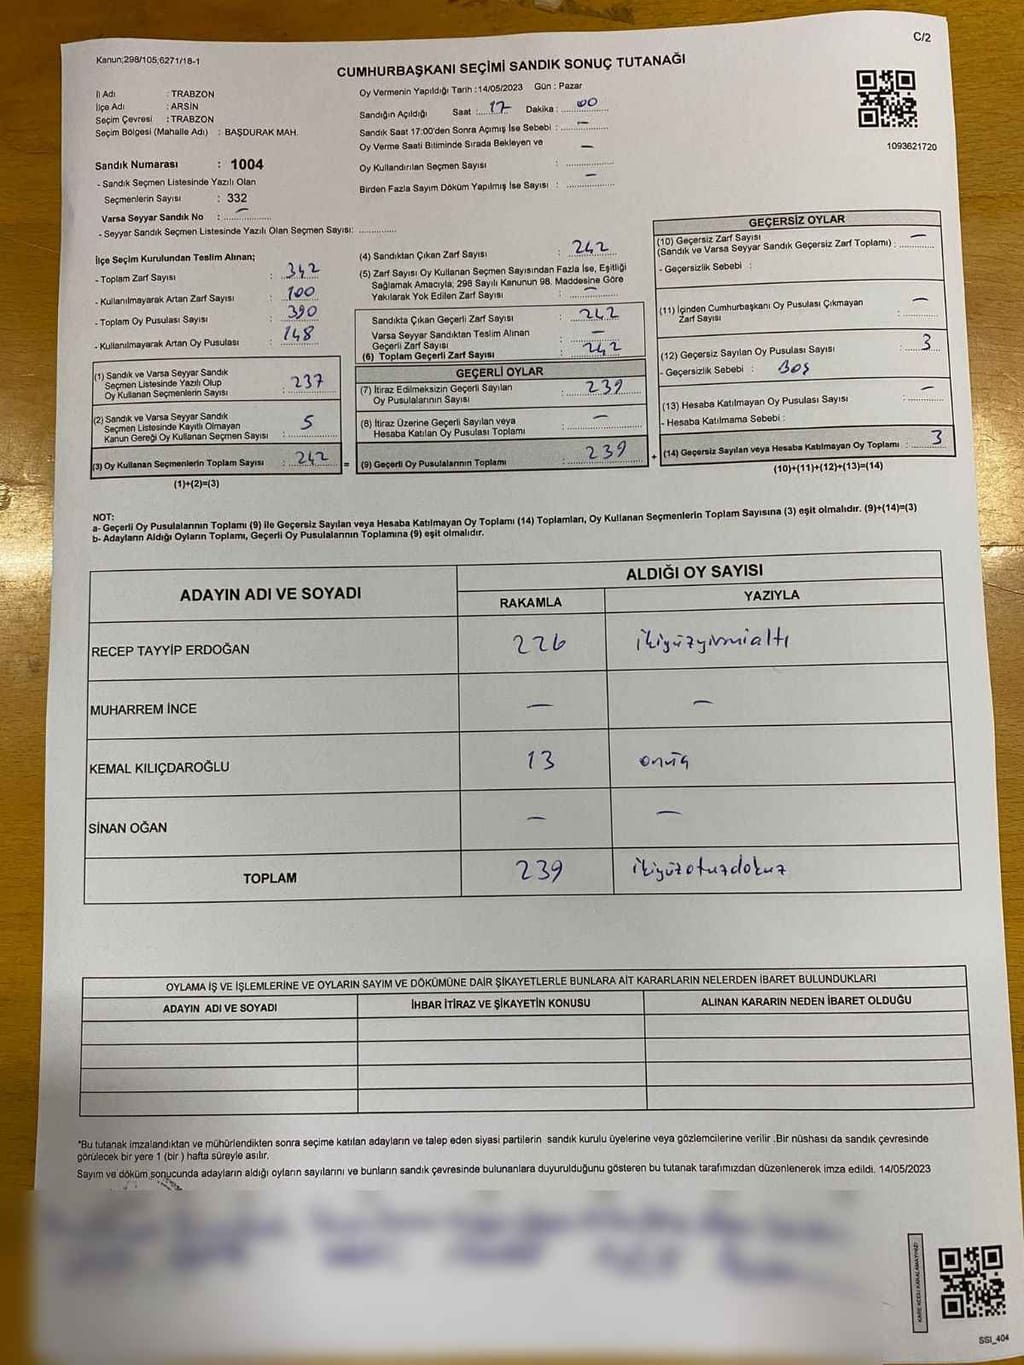 C/2
Kanun;298/105,6271/18-1
CUMHURBAŞKANI SEÇİMİ SANDIK SONUÇ TUTANAĞI
İl Adı : TRABZON
İlçe Adı : ARSİN
Seçim Çevresi : TRABZON
Seçim Bölgesi (Mahalle Adı) : BAŞDURAK MAH.
Oy Vermenin Yapıldığı Tarih : 14/05/2023 Gün : Pazar
Sandığın Açıldığı Saat : 17 Dakika : 00
Sandık Saat 17:00'den Sonra Açımış İse Sebebi : —
Oy Verme Saati Bitiminde Sırada Bekleyen ve
Oy Kullandırılan Seçmen Sayısı : —
Birden Fazla Sayım Döküm Yapılmış İse Sayısı : —
1093621720
Sandık Numarası : 1004
- Sandık Seçmen Listesinde Yazılı Olan
Seçmenlerin Sayısı : 332
Varsa Seyyar Sandık No : —
- Seyyar Sandık Seçmen Listesinde Yazılı Olan Seçmen Sayısı: ..............
İlçe Seçim Kurulundan Teslim Alınan;
- Toplam Zarf Sayısı : 342
- Kullanılmayarak Artan Zarf Sayısı : 100
- Toplam Oy Pusulası Sayısı : 390
- Kullanılmayarak Artan Oy Pusulası : 148
(1) Sandık ve Varsa Seyyar Sandık
Seçmen Listesinde Yazılı Olup
Oy Kullanan Seçmenlerin Sayısı : 237
(2) Sandık ve Varsa Seyyar Sandık
Seçmen Listesinde Kayıtlı Olmayan
Kanun Gereği Oy Kullanan Seçmen Sayısı : 5
(3) Oy Kullanan Seçmenlerin Toplam Sayısı : 242
(1)+(2)=(3)
=
(4) Sandıktan Çıkan Zarf Sayısı : 242
(5) Zarf Sayısı Oy Kullanan Seçmen Sayısından Fazla İse, Eşitliği
Sağlamak Amacıyla, 298 Sayılı Kanunun 98. Maddesine Göre
Yakılarak Yok Edilen Zarf Sayısı : —
Sandıkta Çıkan Geçerli Zarf Sayısı : 242
Varsa Seyyar Sandıktan Teslim Alınan
Geçerli Zarf Sayısı : —
(6) Toplam Geçerli Zarf Sayısı : 242
GEÇERLİ OYLAR
(7) İtiraz Edilmeksizin Geçerli Sayılan
Oy Pusulalarının Sayısı : 239
(8) İtiraz Üzerine Geçerli Sayılan veya
Hesaba Katılan Oy Pusulası Toplamı : —
(9) Geçerli Oy Pusulalarının Toplamı : 239
+
GEÇERSİZ OYLAR
(10) Geçersiz Zarf Sayısı
(Sandık ve Varsa Seyyar Sandık Geçersiz Zarf Toplamı) : —
- Geçersizlik Sebebi :
(11) İçinden Cumhurbaşkanı Oy Pusulası Çıkmayan
Zarf Sayısı : —
(12) Geçersiz Sayılan Oy Pusulası Sayısı : 3
- Geçersizlik Sebebi : Boş
(13) Hesaba Katılmayan Oy Pusulası Sayısı : —
- Hesaba Katılmama Sebebi :
(14) Geçersiz Sayılan veya Hesaba Katılmayan Oy Toplamı : 3
(10)+(11)+(12)+(13)=(14)
NOT:
a- Geçerli Oy Pusulalarının Toplamı (9) ile Geçersiz Sayılan veya Hesaba Katılmayan Oy Toplamı (14) Toplamları, Oy Kullanan Seçmenlerin Toplam Sayısına (3) eşit olmalıdır. (9)+(14)=(3)
b- Adayların Aldığı Oyların Toplamı, Geçerli Oy Pusulalarının Toplamına (9) eşit olmalıdır.
ADAYIN ADI VE SOYADI ALDIĞI OY SAYISI
RAKAMLA YAZIYLA
RECEP TAYYİP ERDOĞAN 226 ikiyüzyirmialtı
MUHARREM İNCE — —
KEMAL KILIÇDAROĞLU 13 onüç
SİNAN OĞAN — —
TOPLAM 239 ikiyüzotuzdokuz
OYLAMA İŞ VE İŞLEMLERİNE VE OYLARIN SAYIM VE DÖKÜMÜNE DAİR ŞİKAYETLERLE BUNLARA AİT KARARLARIN NELERDEN İBARET BULUNDUKLARI
ADAYIN ADI VE SOYADI İHBAR İTİRAZ VE ŞİKAYETİN KONUSU ALINAN KARARIN NEDEN İBARET OLDUĞU
*Bu tutanak imzalandıktan ve mühürlendikten sonra seçime katılan adayların ve talep eden siyasi partilerin sandık kurulu üyelerine veya gözlemcilerine verilir .Bir nüshası da sandık çevresinde
görülecek bir yere 1 (bir ) hafta süreyle asılır.
Sayım ve döküm sonucunda adayların aldığı oyların sayılarını ve bunların sandık çevresinde bulunanlara duyurulduğunu gösteren bu tutanak tarafımızdan düzenlenerek imza edildi. 14/05/2023
KARE KODU KARALAMAYINIZ!
SSI_404